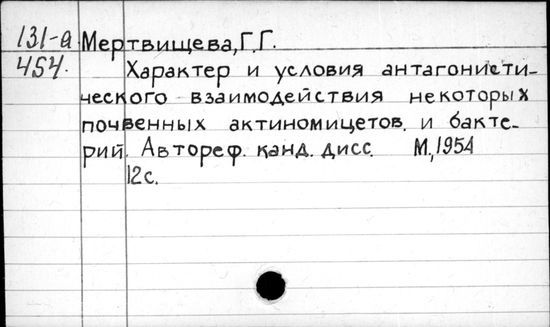 131-а Мертвищева, Г.Г.
454. Характер и условия антагонисти-
ческого взаимодействия некоторых
почвенных актиномицетов. и бакте-
рий. Автореф. канд. дисс. М., 1954
12с.